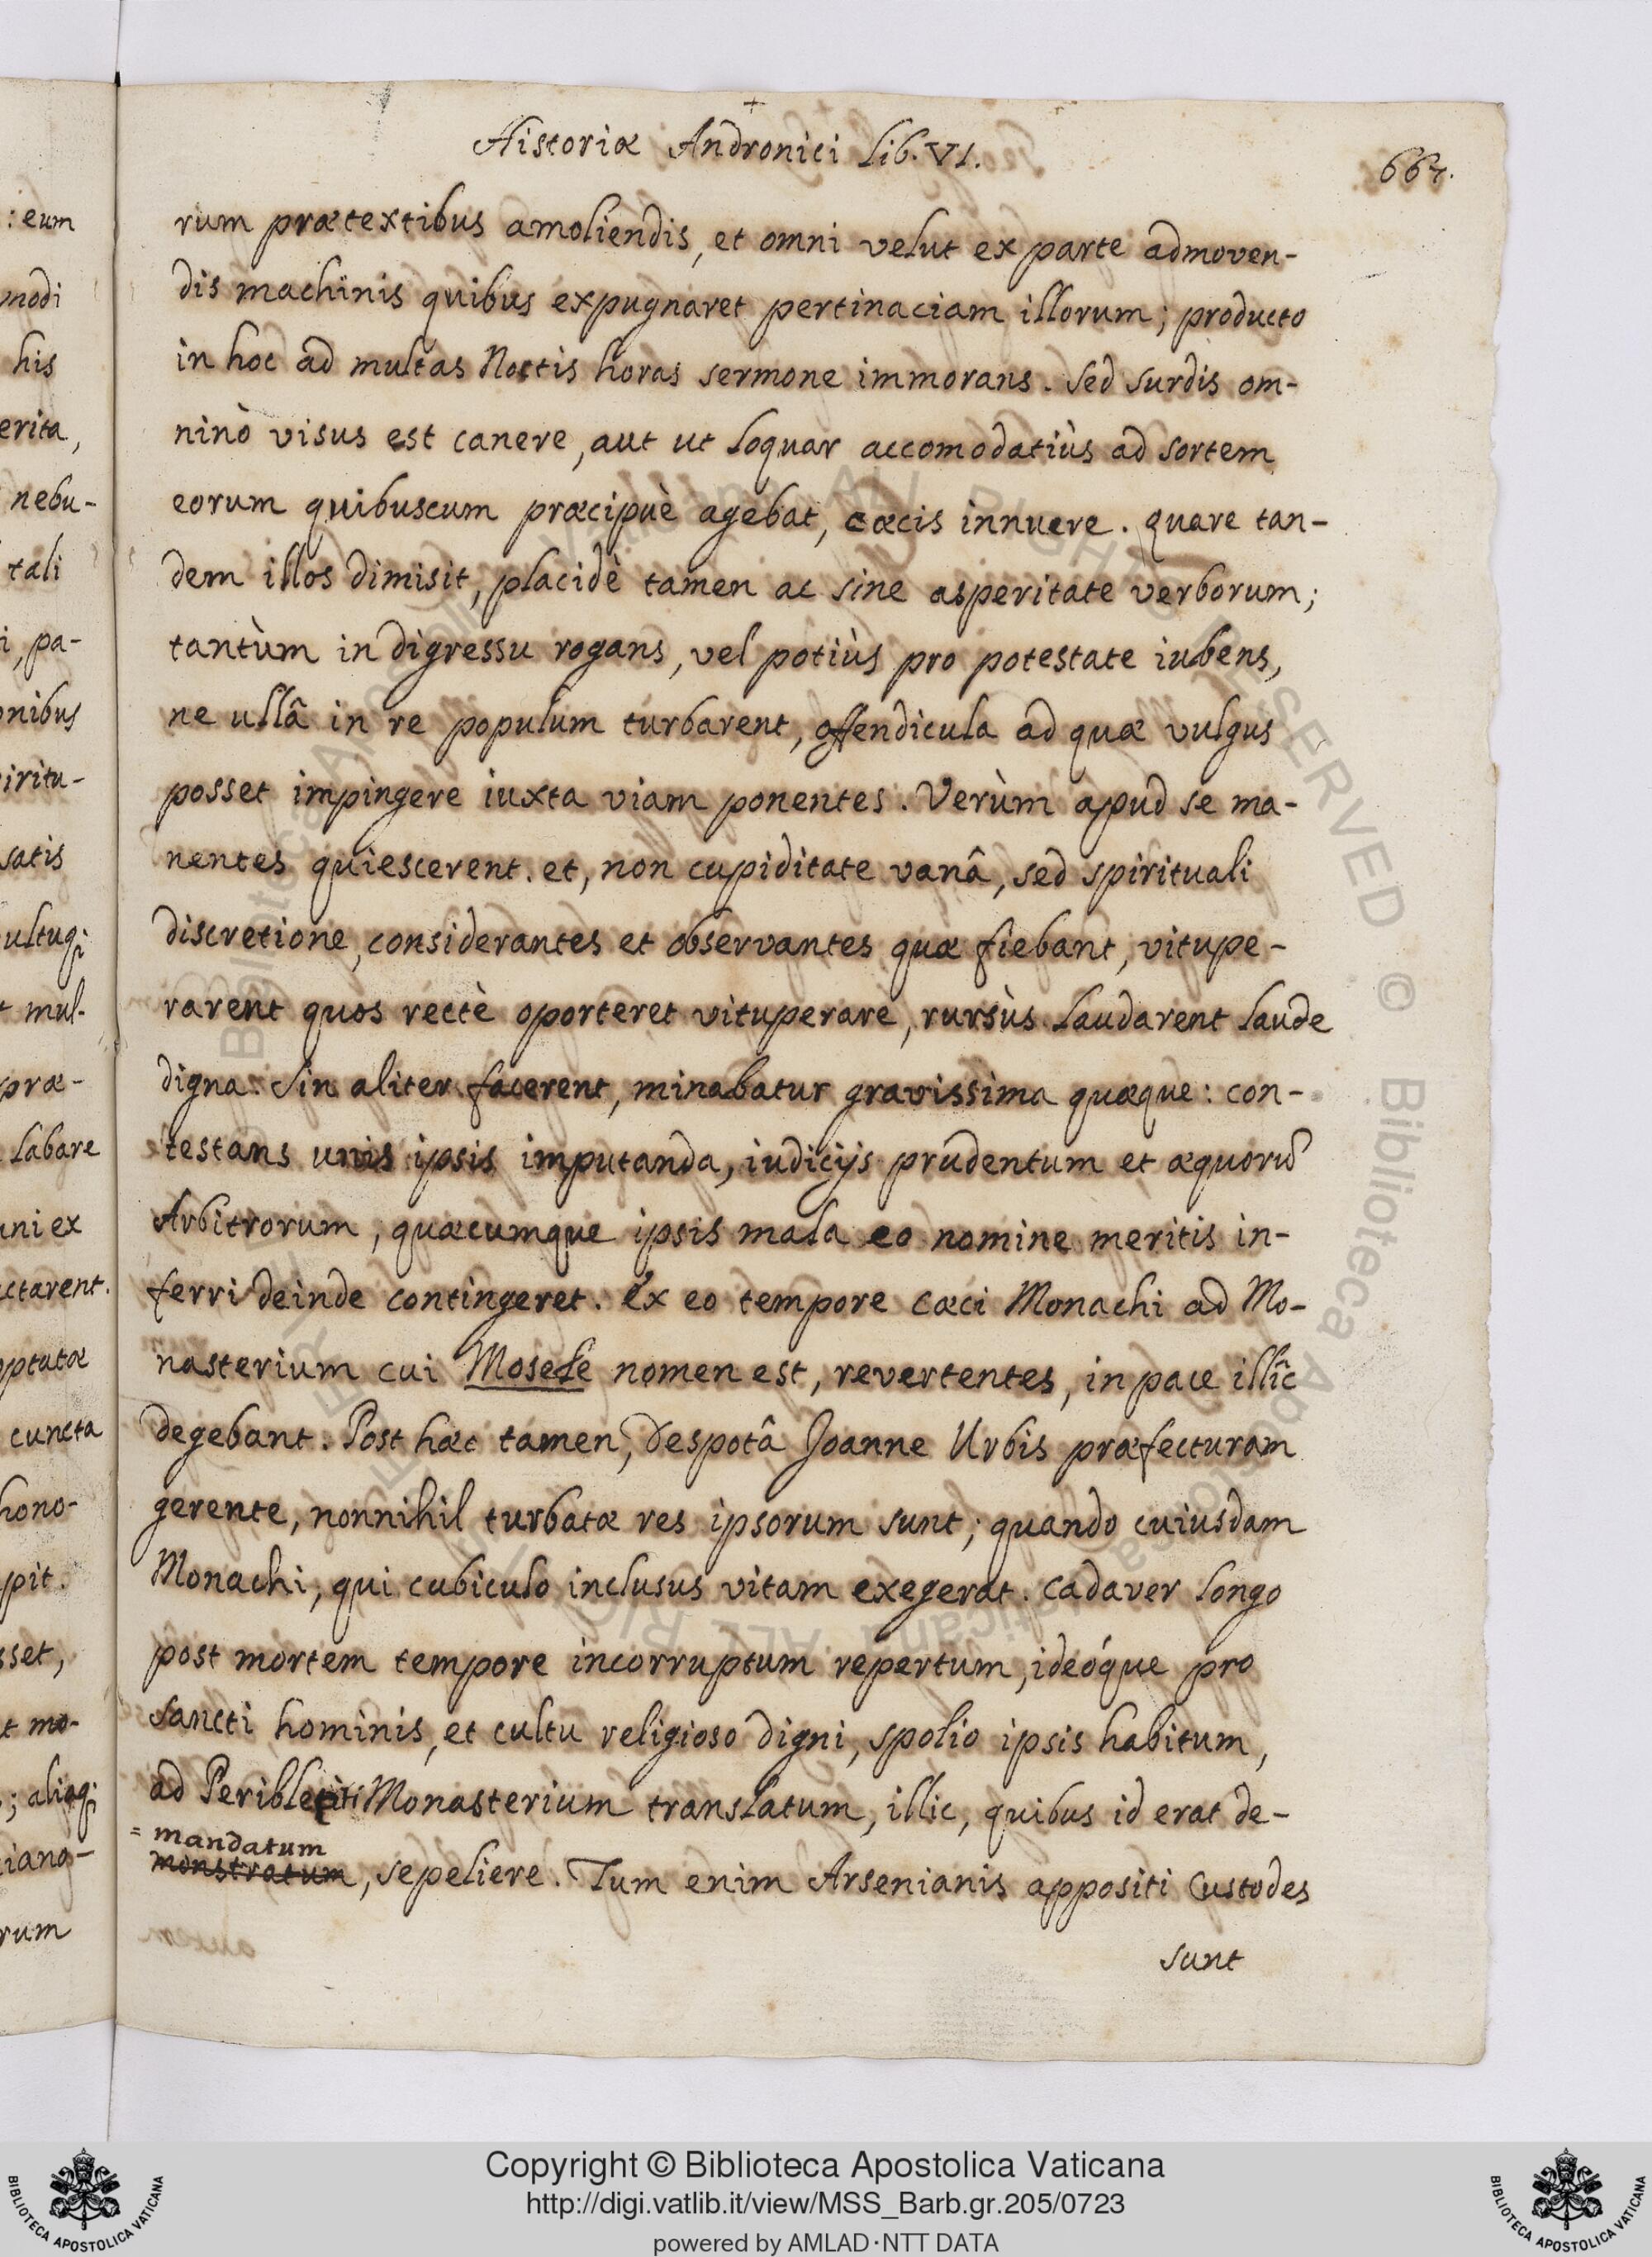 Historiæ Andronici Lib. VI.
667.
rum prætextibus amoliendis, et omni velut ex parte admoven-
dis machinis quibus expugnaret pertinaciam illorum; producto
in hoc ad multas Noctis horas sermone immorans. Sed surdis om-
ninò visus est canere, aut ut loquar accomodatiùs ad sortem
eorum quibuscum præcipuè agebat, cæcis innuere. Quare tan-
dem illos dimisit, placidè tamen ac sine asperitate verborum;
tantùm in digressu rogans, vel potiùs pro potestate iubens,
ne ullâ in re populum turbarent, offendicula ad quæ vulgus
posset impingere iuxta viam ponentes. Verùm apud se ma-
nentes quiescerent. et, non cupiditate vanâ, sed spirituali
discretione, considerantes et observantes quæ fiebant, vitupe-
rarent quos rectè oporteret vituperare, rursùs laudarent laude
digna. Sin aliter facerent, minabatur gravissima quæque: con-
testans unis ipsis imputanda, iudicijs prudentum et æquorũ
Arbitrorum, quæcumque ipsis mala eo nomine meritis in-
ferri deinde contingeret. Ex eo tempore cæci Monachi ad Mo-
nasterium cui Mosele nomen est, revertentes, in pace illîc
degebant. Post hæc tamen, Despotâ Joanne Urbis præfecturam
gerente, nonnihil turbatæ res ipsorum sunt; quando cuiusdam
Monachi, qui cubiculo inclusus vitam exegerat. cadaver longo
post mortem tempore incorruptum repertum, ideóque pro
sancti hominis, et cultu religioso digni, spolio ipsis habitum,
ad Monasterium translatum, illic, quibus id erat de-
= mandatum
monstratum, sepeliere. Tum enim Arsenianis appositi Custodes
sunt
: eum
modi
his
erita,
nebu-
tali
i, pa-
onibus
iritu-
satis
ultuqꝫ
t mul-
præ-
labare
uni ex
ctarent.
optatæ
cuncta
hono-
pit.
sset,
t mo-
; aliaqꝫ
iano-
rum
Copyright © Biblioteca Apostolica Vaticana
http://digi.vatlib.it/view/MSS_Barb.gr.205/0723
powered by AMLAD·NTT DATA
BIBLIOTECA APOSTOLICA VATICANA
BIBLIOTECA APOSTOLICA VATICANA